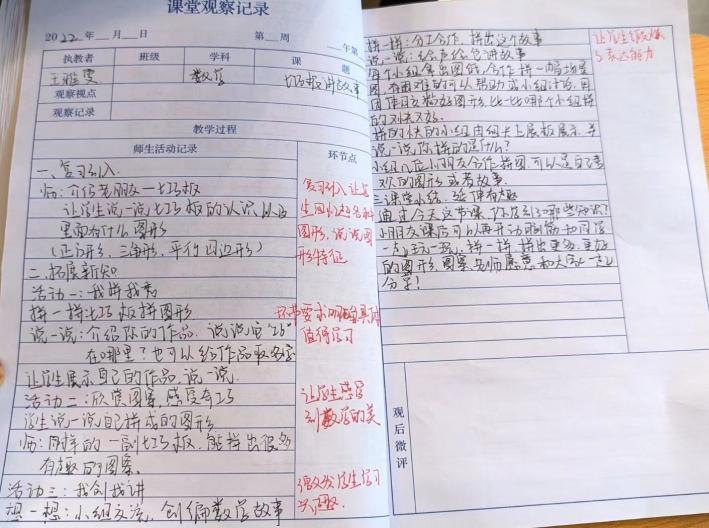 课堂观察记录
2022年__月__日 第__周 __午第
执教者 班级 学科 课 题
王雅雯 数学 七巧板讲故事
观察视点
观察记录
教学过程
师生活动记录 环节点
一、复习引入
师：介绍老朋友—七巧板
让学生说一说七巧板的认识，从边
里面有什么图形
（正方形、三角形、平行四边形）
复习引入让学
生回忆
图形，说说图
形特征
二、拓展新知
活动一：我拼我秀
拼一拼：七巧板拼图形
说一说：介绍你的作品，说说它"巧"
在哪里？也可以给作品取名字
让学生展示自己的作品，说一说
环节要求明确具体
值得学习
活动二：欣赏图案，感受奇巧
学生说一说自己拼成的图形
师：同样的一副七巧板，能拼出很多
有趣的图案。
让学生感受
到数学的美
活动三：我创我讲
想一想：小组交流，创编数学故事
激发学生学习
兴趣
拼一拼：分工合作，拼出这个故事
说一说：绘声绘色讲故事
每个小组拿出图纸，合作拼一幅场景
图，有困难的可以帮助或小组讨论，用
固体胶粘好图形，比一比哪个小组拼
的又快又好。
拼的快的小组由组长上展板展示，并
说一说你拼的是什么？
小组几位小朋友合作拼图，可以是自己喜
欢的图形或者故事。
三、课堂小结，延伸有趣
通过今天这节课，你学到了哪些知识？
小朋友课后可以再开动脑筋和同伴
一起玩一玩，拼一拼，拼出更多、更好
的图形、图案，老师愿意和大家一起
分享！
与表达能力
观后微评